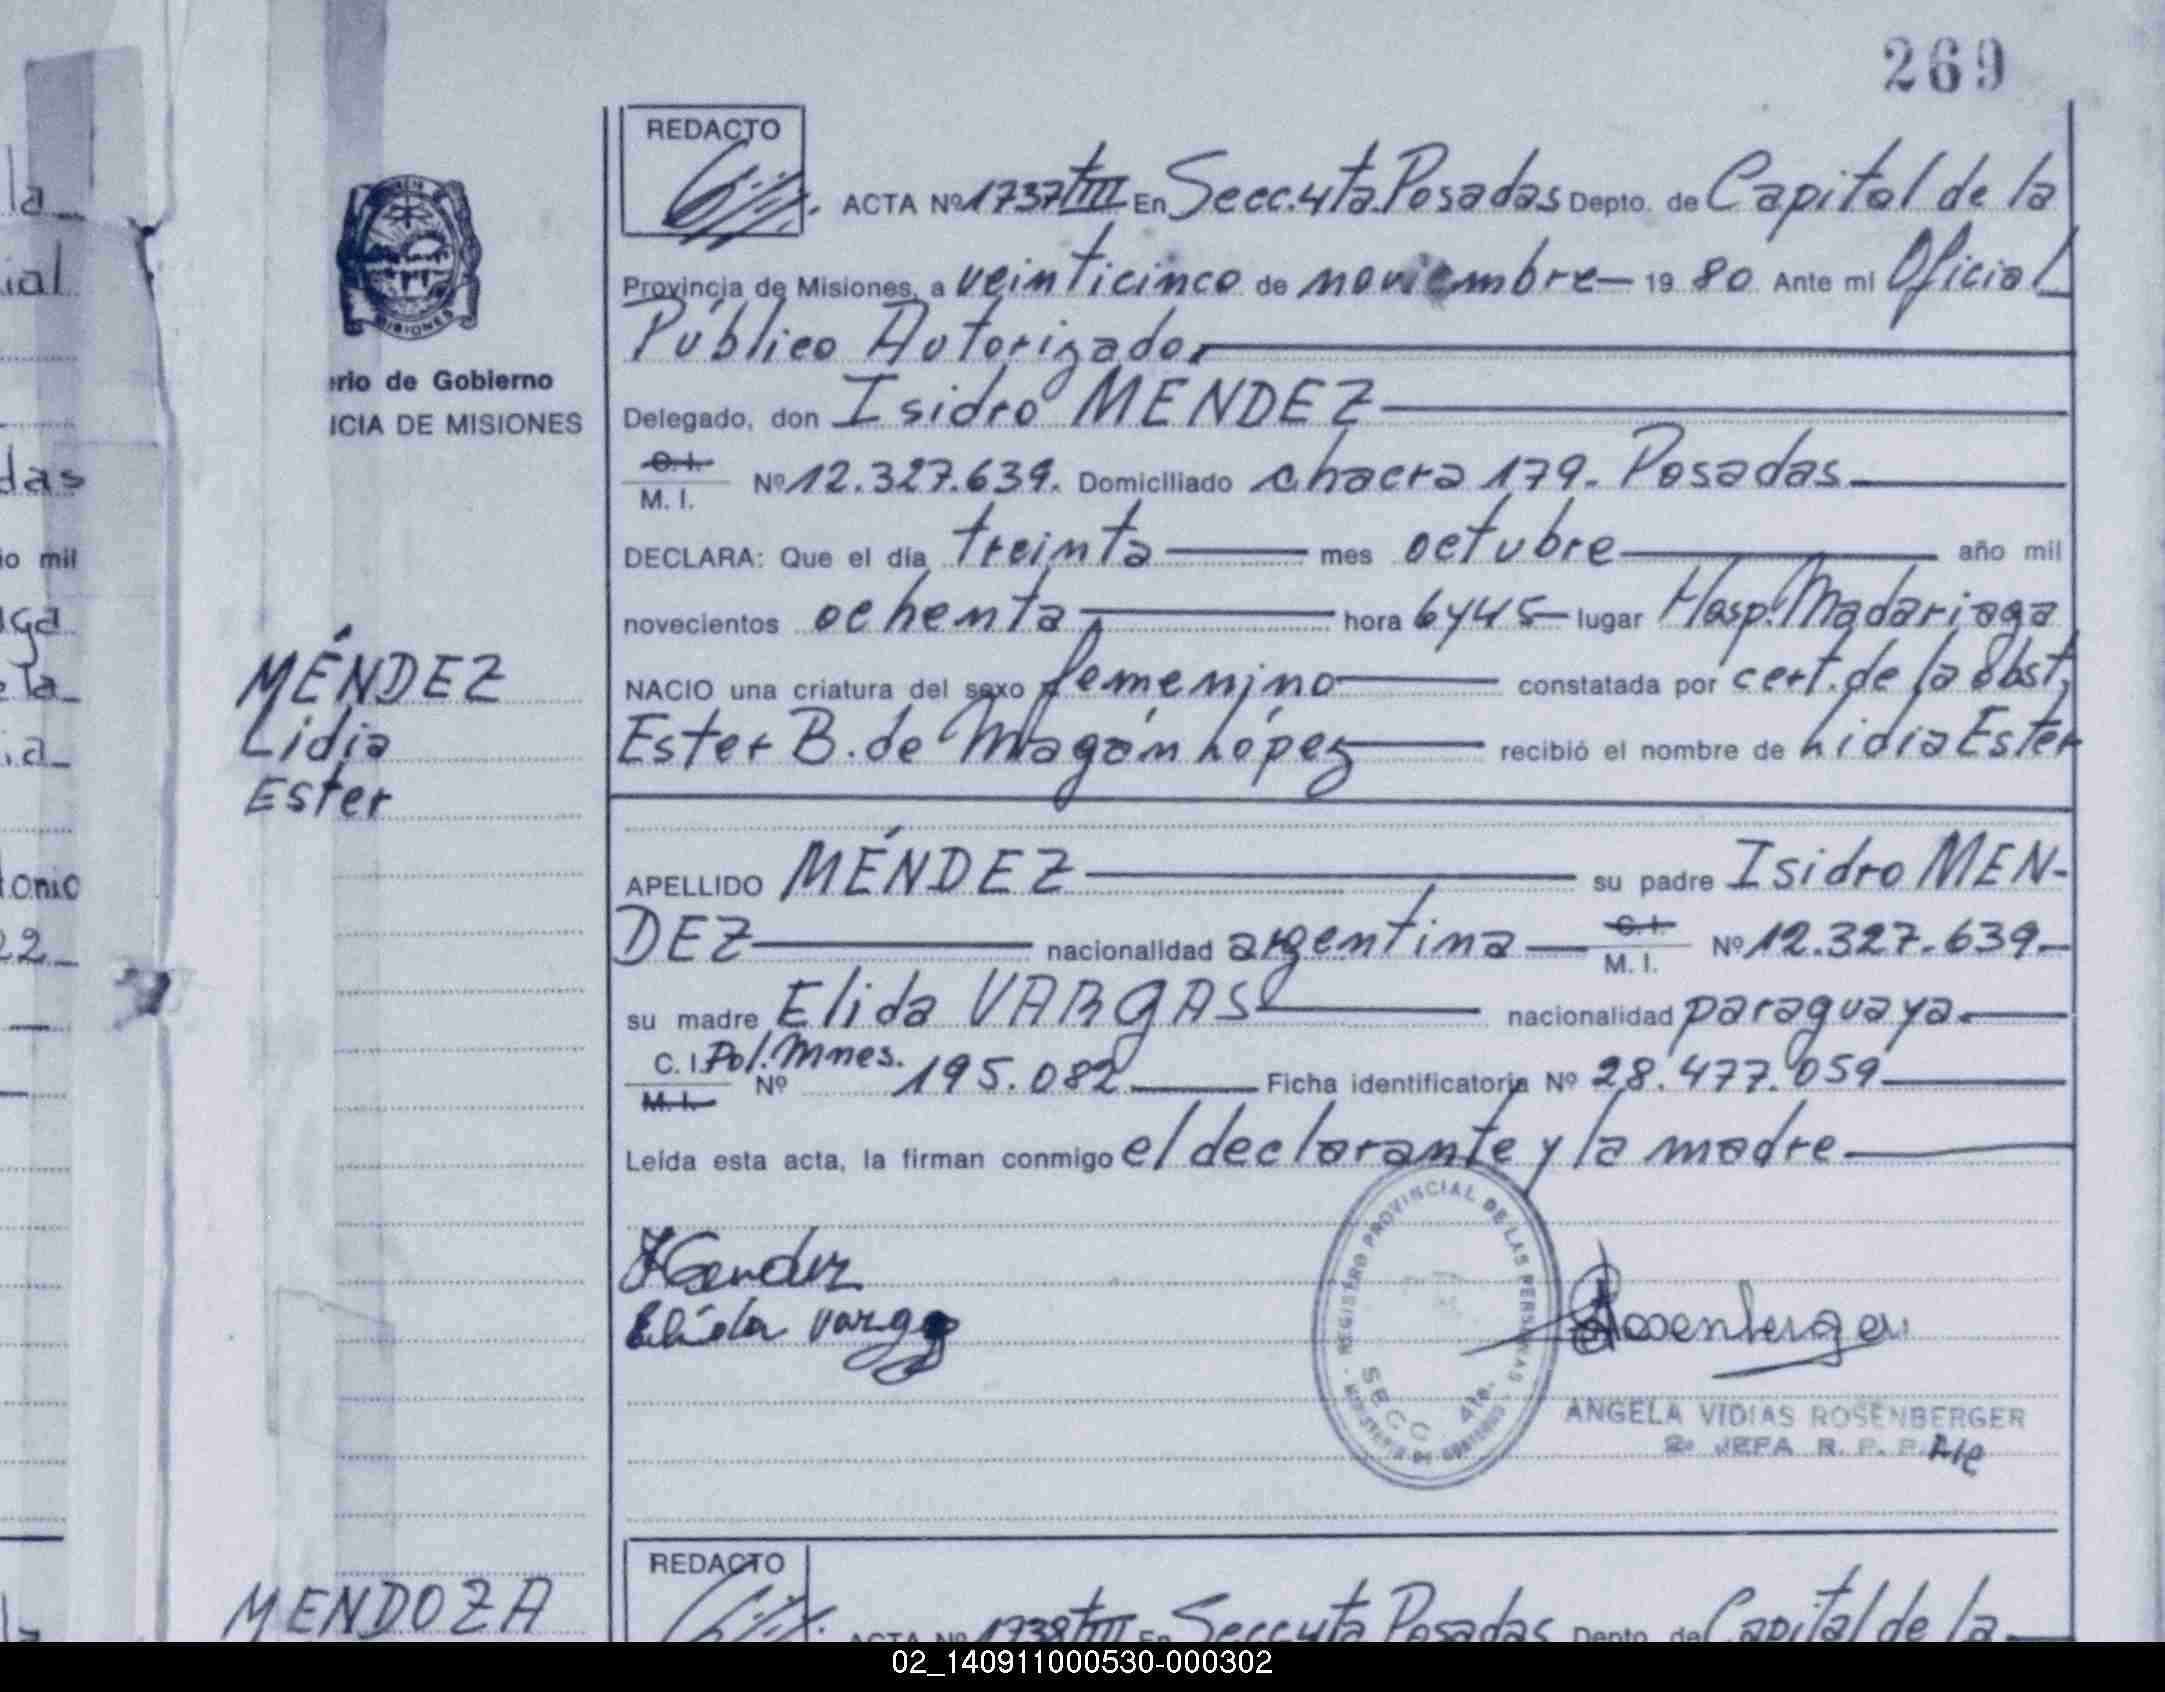 269
REDACTO
ACTA Nº 1737 tIII En Secc. 4ta. Posadas Depto. de Capital de la
Provincia de Misiones, a veinticinco de noviembre— 19 80 Ante mi Oficial
Público Autorizado,
Delegado, don Isidro MENDEZ
C. I.
M. I. Nº 12.327.639. Domiciliado chacra 179. Posadas.
DECLARA: Que el día treinta mes octubre año mil
novecientos ochenta hora 6y45 lugar Hosp. Madariaga
NACIO una criatura del sexo femenino constatada por cert. de la Obst,
Ester B. de Magán López recibió el nombre de Lidia Ester
APELLIDO MÉNDEZ su padre Isidro MEN-
DEZ nacionalidad argentina C. I.
M. I. Nº 12.327.639
su madre Elida VARGAS nacionalidad paraguaya.
C. I. Pol. Mnes.
M. I. Nº 195.082 Ficha identificatoria Nº 28.477.059
Leída esta acta, la firman conmigo el declarante y la madre
Elida Vargas
REGISTRO PROVINCIAL DE LAS PERSONAS
SECC 4ta.
MINISTERIO DE GOBIERNO
Rosenberger
ANGELA VIDIAS ROSENBERGER
2º JEFA R. P. P.
MISIONES
rio de Gobierno
ICIA DE MISIONES
MÉNDEZ
Lidia
Ester
la
ial
das
io mil
aga
e la
ia
tonio
22
MENDOZA
REDACTO
ACTA Nº 1738 tIII En Secc 4ta Posadas Depto. de Capital de la
02_140911000530-000302